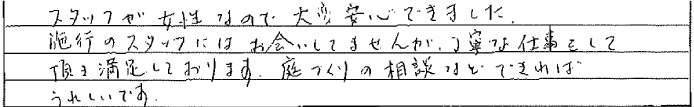 スタッフが女性なので大変安心できました.
施行のスタッフにはお会いしてませんが、丁寧な仕事をして
頂き満足しております. 庭づくりの相談などできれば
うれしいです.